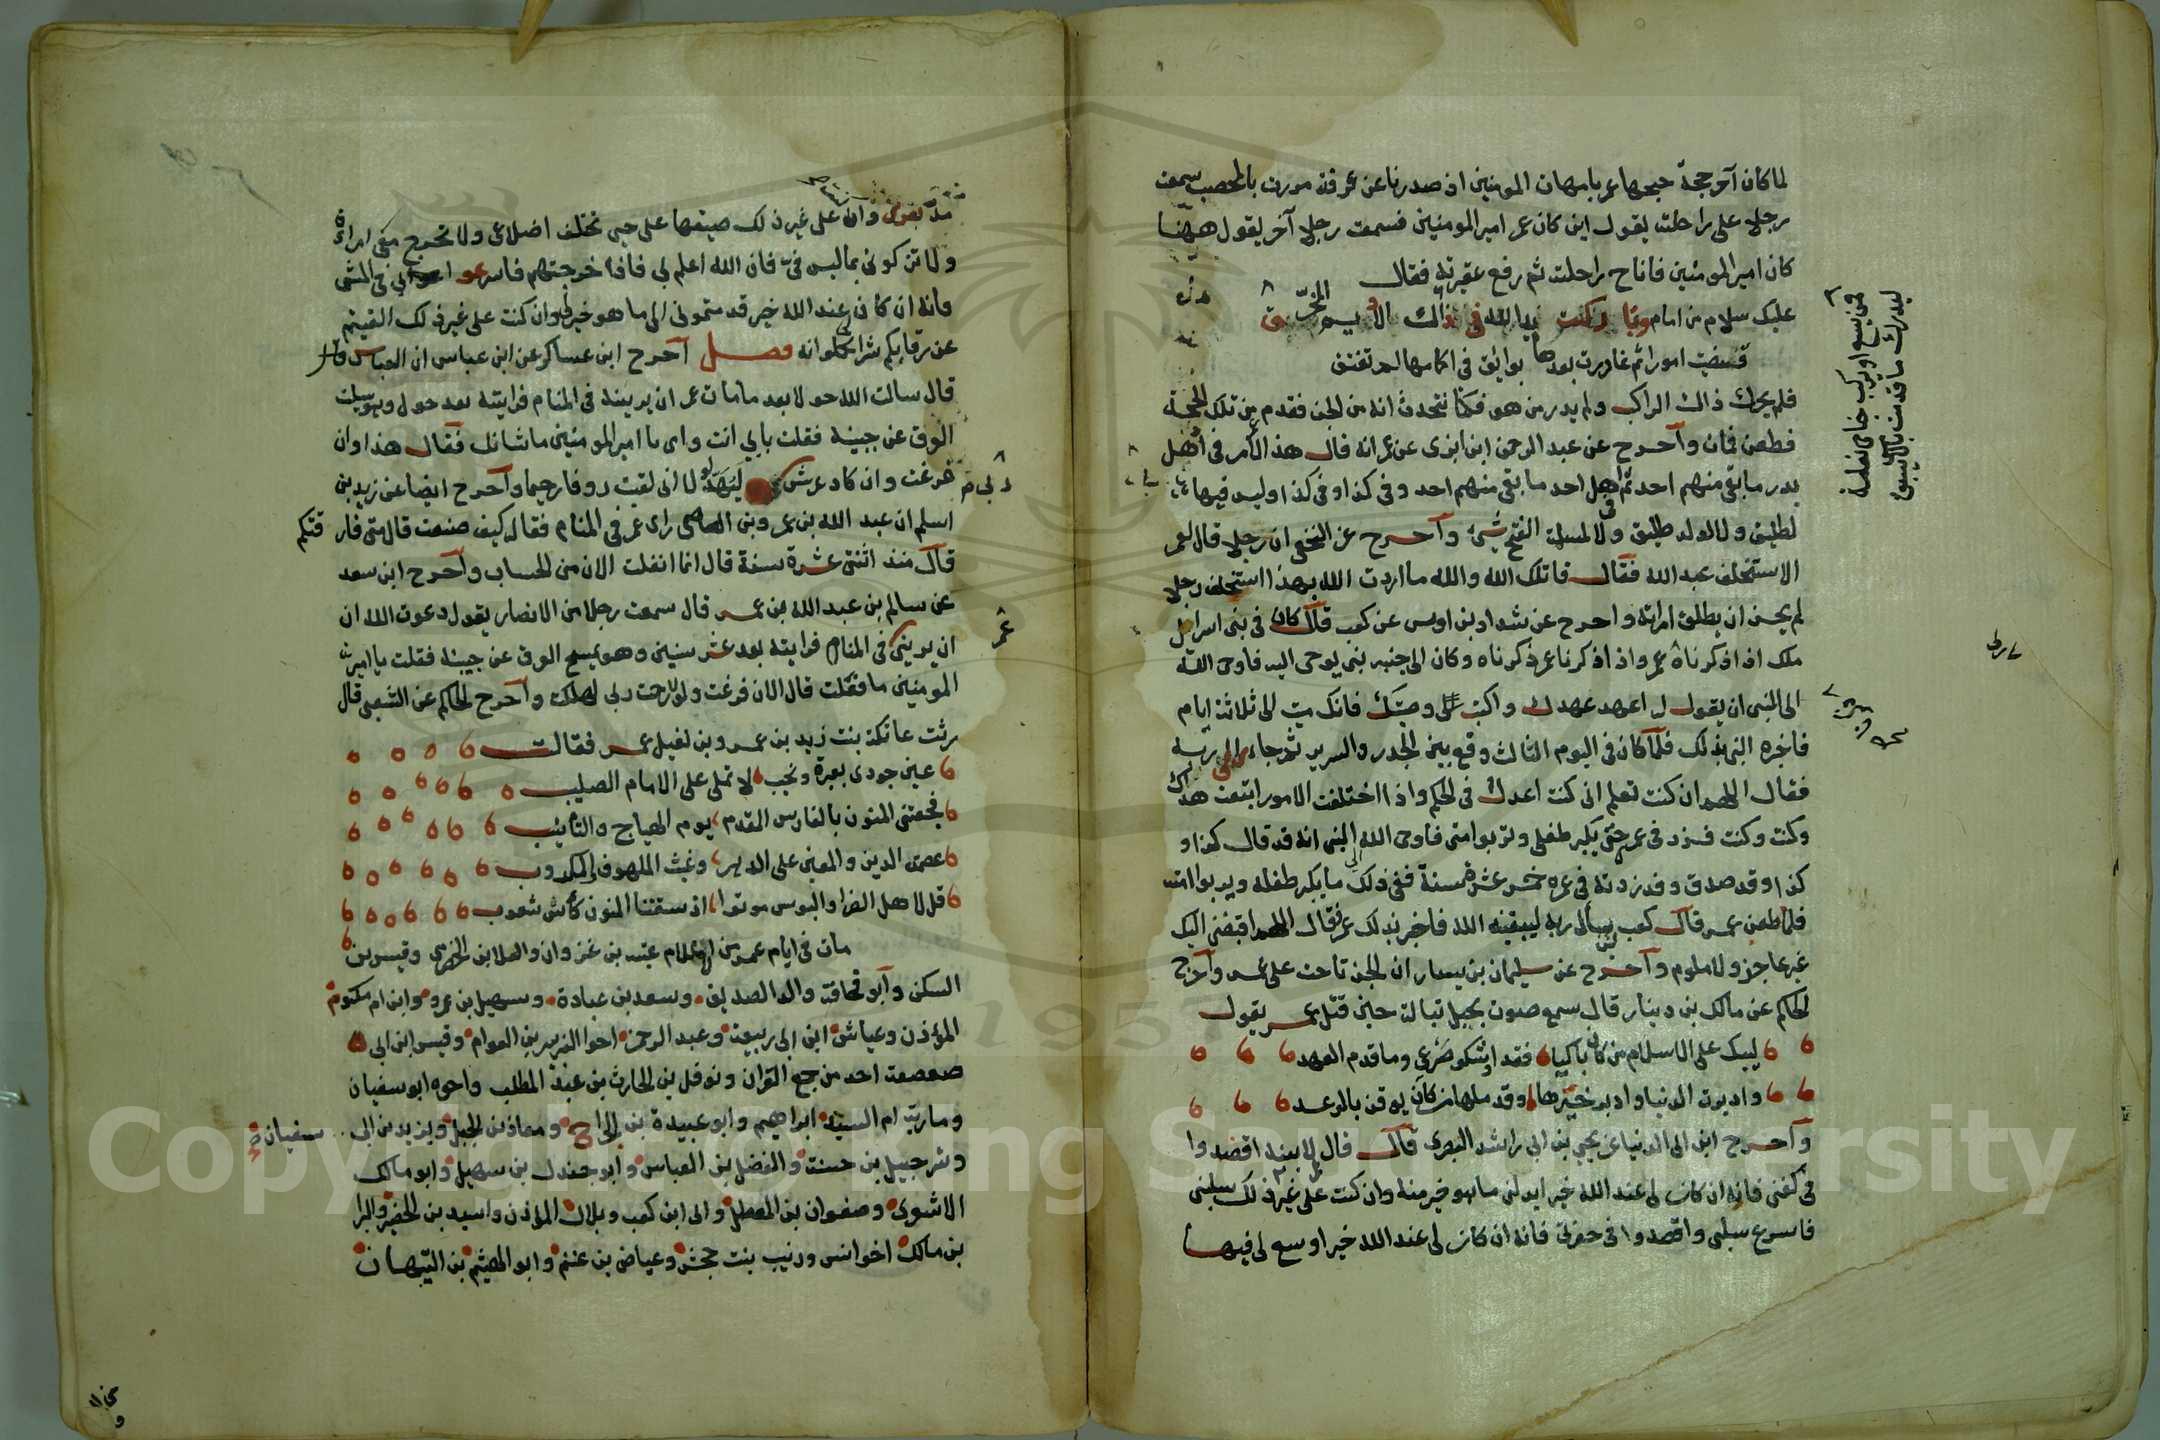 لما كان آخر حجة حجها عمر بامهات المومنين اذ صدرنا عن عرفة مررت بالمحصب سمعت
رجلا على راحلته يقول اين كان عمر امير المومنين فسمعت رجلا آخر يقول ههنا
كان امير المومنين فاناخ راحلته ثم رفع عقيرته فقال
عليك سلام من امام وباركت يد الله في ذاك الاديم المخرق
فمن يسع او يركب جناحي نعامة
ليدرك ما قدمت بالامس يسبق
قضيت امورا ثم غادرت بعدها بوايق في اكمامها لم تفتق
فلم يحرك ذاك الراكب ولم يدر من هو فكنا نتحدث انه من الجن فقدم من تلك الحجة
فطعن فمات وآخرج عن عبد الرحمن ابن ابزى عن عمر انه قال هذا الامر في اهل
بدر ما بقي منهم احد ثم في اهل احد ما بقي منهم احد وفي كذا وفي كذا وليس فيها
لطليق ولا لولد طليق ولا لمسلمة الفتح شيئ وآخرج عن النخعي ان رجلا قال لعمر
الا ستخلف عبد الله فقال قاتلك الله والله ما اردت الله بهذا استخلف رجلا
لم يحسن ان يطلق امراته واخرج عن شداد بن اوس عن كعب قال كان في بني اسرايل
ملك اذا ذكرناه عمر واذا ذكرنا عمر ذكرناه وكان الى جنبه نبي يوحى اليه فاوحى الله
الى النبي ان يقول له اعهد عهدك واكتب على وصيتك فانك ميت الى ثلاثة ايام
فاخبره النبي بذلك فلما كان في اليوم الثالث وقع بين الجدر والسرير ثم جاء الى ربه
فقال اللهم ان كنت تعلم اني كنت اعدل في الحكم واذا اختلفت الامور ابتعت هداك
وكنت وكنت فزد في عمري حتى يكبر طفلي وتربوا امتي فاوحى الله الى النبي انه قد قال كذا و
كذا وقد صدق وقد زدته في عمره خمس عشرة سنة ففي ذلك ما يكبر طفله ويربوا امته
فلما طعن عمر قال كعب لين سأل ربه ليبقينه الله فاخبر بذلك عمر فقال اللهم اقبضني اليك
غير عاجز ولا ملوم وآخرج عن سليمان بن يسار ان الجن ناحت على عمر وآخرج
الحاكم عن مالك بن دينار قال سمع صوت بجبل تبالة حين قتل عمر يقول
ليبك على الاسلام من كان باكيا فقد اوشكو صرعى وما قدم العهد
وادبرت الدنيا وادبر خيرها وقد ملها من كان يوقن بالوعد
وآخرج ابن ابي الدنيا عن يحيى بن ابي راشد البصري قال قال عمر لابنه اقصدوا
في كفني فانه ان كان لي عند الله خير ابدلني ما هو خير منه وان كنت على غير ذلك سلبني
فاسرع سلبي واقصدوا في حفرتي فانه ان كان لي عند الله خير اوسع لي فيها
مد بصري وان على غير ذلك ضيقها على حتى تختلف اضلاعي ولا تخرج معي امراءة
ولا تزكوني بما ليس في فان الله اعلم بي فاذا خرجتم فاسرعوا بي في المشي
فانه ان كان لي عند الله خير قد متموني الى ما هو خير لي وان كنت على غير ذلك القيتم
عن رقابكم شرا تحملونه فصل آخرج ابن عساكر عن ابن عباس ان العباس قال
قال سالت الله حولا بعد ما مات عمر ان يرينه في المنام فرايته بعد حول وهو يسلت
العرق عن جبينه فقلت بابي انت وامي يا امير المومنين ما شانك فقال هذا اوان
فرغت وان كاد عرش عمر ليهد لولا اني لقيت روفا رحيما وآخرج ايضا عن زيد بن
اسلم ان عبد الله بن عمر وبن العاص راى عمر في المنام فقال كيف صنعت قال متى فارقتكم
قال منذ اثنتى عشرة سنة قال انما انفلت الان من الحساب وآخرج ابن سعد
عن سالم بن عبد الله بن عمر قال سمعت رجلا من الانصار يقول دعوت الله ان
ان يريني عمر في المنام فرايته بعد عشر سنين وهو يمسح العرق عن جبينه فقلت يا امير
المومنين ما فعلت قال الان فرغت ولولا رحمة ربي لهلكت وآخرج الحاكم عن الشعبي قال
رثت عاتكة بنت زيد بن عمرو بن نفيل عمر فقالت
عين جودى بعبرة ونحيب لا تملي على الامام الصليب
فجعتني المنون بالفارس المقدم يوم الهياج والتأنيب
عصمة الدين والمعين على الدهر وغيث الملهوف والمكروب
قل لاهل الضرا والبوس موتوا اذ سقتنا المنون كأس شعوب
مات في ايام عمر من الاعلام عتبه بن غزوان والعلا بن الحضرمي وقيس بن
السكن وآبو قحافة والد الصديق وسعد بن عبادة وسهيل بن عمرو وابن ام مكتوم
المؤذن وعياش ابن ابي ربيعة وعبد الرحمن اخوا الزبير بن العوام وقيس ابن ابي
صعصعة احد من جمع القران ونوفل بن الحارث بن عبد المطلب واخوه ابو سفيان
ومارية ام السيد ابراهيم وابو عبيدة بن الجراح ومعاذ بن الجبل ويزيد بن ابي سفيان
وشرحبيل بن حسنة والفضل بن العباس وابو جندل بن سهيل وابو مالك
الاشعري وصفوان بن المعطل وابى ابن كعب وبلال المؤذن واسيد بن الحضير والبرا
بن مالك اخوانس وزينب بنت جحش وعياض بن غنم وابو الهيثم بن التيهان
Copyright © King Saud University
1957